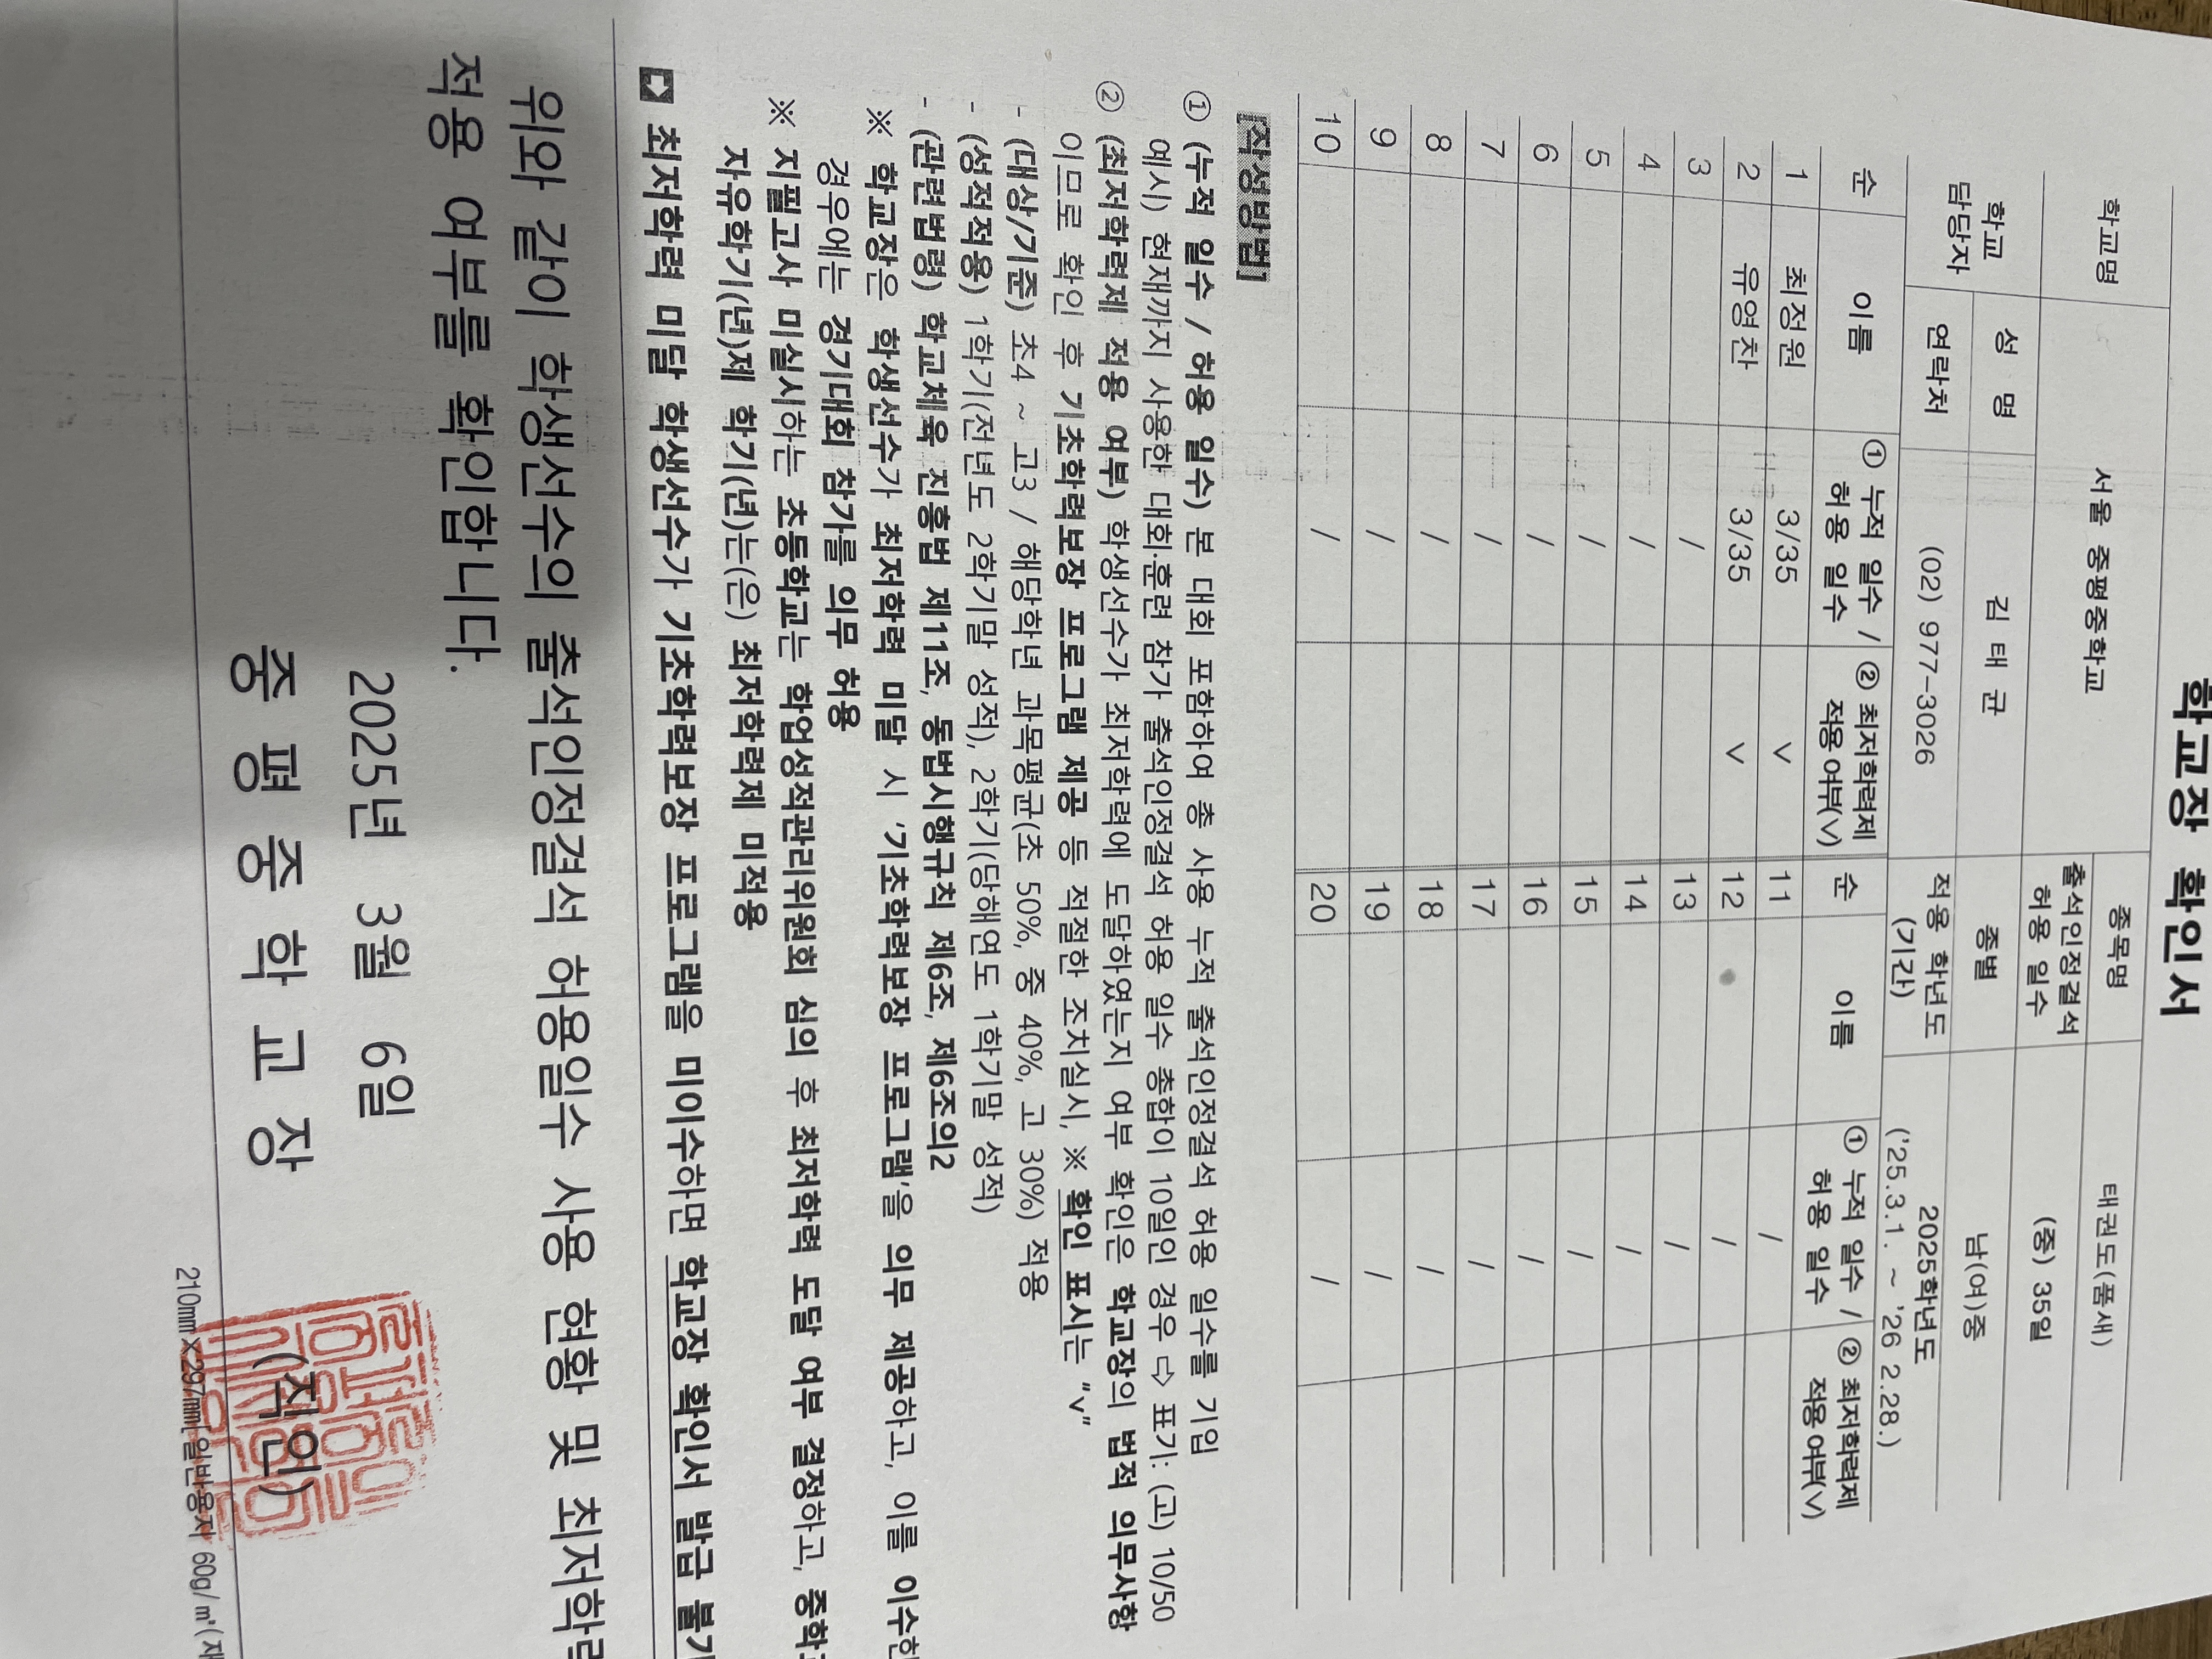 학교장 확인서
학교명 서울 중평중학교 종목명 태권도(품새)
학교 담당자 성 명 김 태 균 출석인정결석 허용 일수 (중) 35일
종별 남(여)중
연락처 (02) 977-3026 적용 학년도 (기간) 2025학년도 ('25.3.1. ~ '26 2.28.)
순 이름 ① 누적 일수 / 허용 일수 ② 최저학력제 적용 여부(∨) 순 이름 ① 누적 일수 / 허용 일수 ② 최저학력제 적용 여부(∨)
1 최정원 3/35 ∨ 11 /
2 유영찬 3/35 ∨ 12 /
3 / 13 /
4 / 14 /
5 / 15 /
6 / 16 /
7 / 17 /
8 / 18 /
9 / 19 /
10 / 20 /
[작성방법]
① (누적 일수 / 허용 일수) 본 대회 포함하여 총 사용 누적 출석인정결석 허용 일수를 기입
예시) 현재까지 사용한 대회·훈련 참가 출석인정결석 허용 일수 총합이 10일인 경우 ⇨ 표기: (고) 10/50
② (최저학력제 적용 여부) 학생선수가 최저학력에 도달하였는지 여부 확인은 학교장의 법적 의무사항
이므로 확인 후 기초학력보장 프로그램 제공 등 적절한 조치실시, ※ 확인 표시는 "∨"
- (대상/기준) 초4 ~ 고3 / 해당학년 과목평균(초 50%, 중 40%, 고 30%) 적용
- (성적적용) 1학기(전년도 2학기말 성적), 2학기(당해연도 1학기말 성적)
- (관련법령) 학교체육 진흥법 제11조, 동법시행규칙 제6조, 제6조의2
※ 학교장은 학생선수가 최저학력 미달 시 '기초학력보장 프로그램'을 의무 제공하고, 이를 이수한
경우에는 경기대회 참가를 의무 허용
※ 지필고사 미실시하는 초등학교는 학업성적관리위원회 심의 후 최저학력 도달 여부 결정하고, 중학교
자유학기(년)제 학기(년)는(은) 최저학력제 미적용
➡ 최저학력 미달 학생선수가 기초학력보장 프로그램을 미이수하면 학교장 확인서 발급 불가
위와 같이 학생선수의 출석인정결석 허용일수 사용 현황 및 최저학력
적용 여부를 확인합니다.
2025년 3월 6일
중 평 중 학 교 장 (직인)
210㎜×297㎜[일반용지 60g/㎡(재